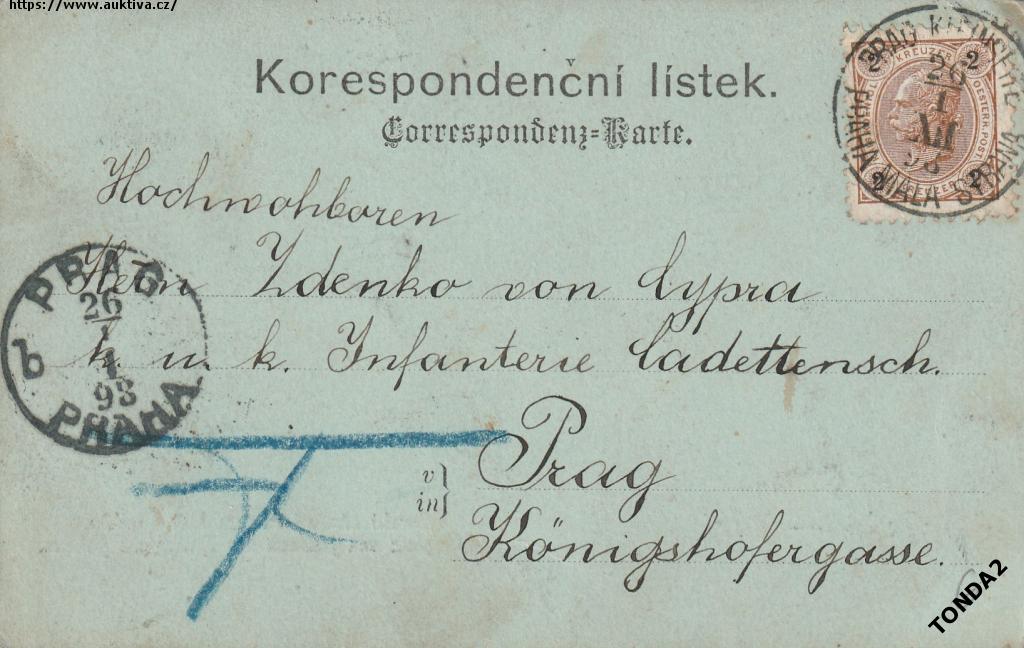 https://www.auktiva.cz/
Korespondenční lístek.
Correspondenz=Karte.
2 KREUZER 2
OESTERR. POST
2 2
PRAG KLEINSEITE
26
I
III
98
PRAHA MALÁ STRANA
Hochwohlboren
Herrn Zdenko von Cypra
k. u. k. Infanterie Cadettensch.
PRAG
26
1
93
b
PRAHA
v
in}
Prag
Königshofergasse.
TONDA2